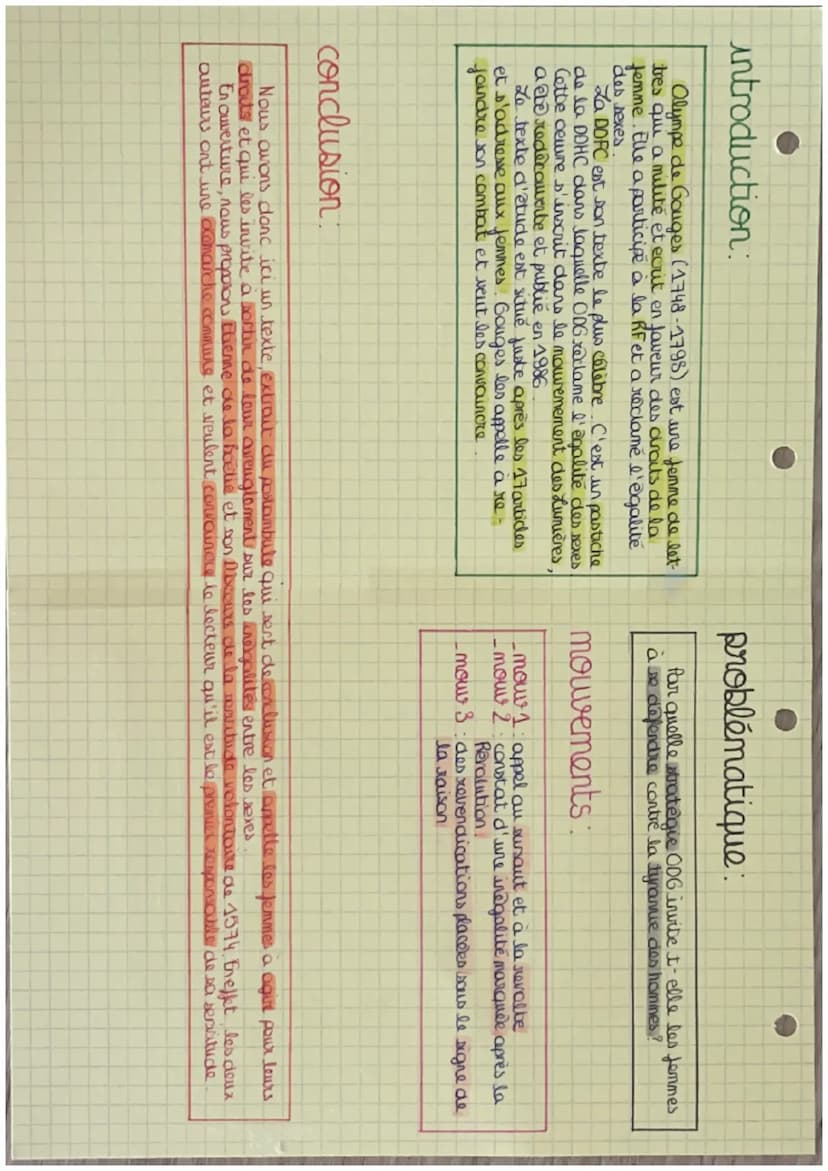 introduction:
Olympe de Gouges (1748-1793) est une femme de let-
tres qui a milité et écrit en faveur des droits de la
femme. Elle a participé à la RF et a réclamé l'égalité
des sexes.
La DDFC est son texte le plus célèbre. C'est un pastiche
de la DDHC dans laquelle ODG réclame l'égalité des sexes.
Cette oeuvre s'inscrit dans le mouvemement des Lumières,
a été redécouverte et publié en 1986.
Le texte d'étude est situé juste après les 17 articles
et s'adresse aux femmes. Gouges les appelle à re-
joindre son combat et veut les convaincre.
problématique:
Par quelle stratégie ODG invite t-elle les femmes
à se défendre contre la tyrannie des hommes?
mouvements:
_mouv 1: appel au sursaut et à la révolte
_mouv 2: constat d'une inégalité marquée après la
Révolution.
_mouv 3: des revendications placées sous le signe de
la raison
conclusion:
Nous avons donc ici un texte, extrait du postambule qui sert de conclusion et appelle les femmes à agir pour leurs
droits et qui les invite à sortir de leur aveuglement sur les inégalités entre les sexes.
En ouverture, nous proposons Etienne de la Boétie et son Discours de la servitude volontaire de 1574. En effet, les deux
auteurs ont une démarche commune et veulent convaincre le lecteur qu'il est le premier responsable de sa servitude.